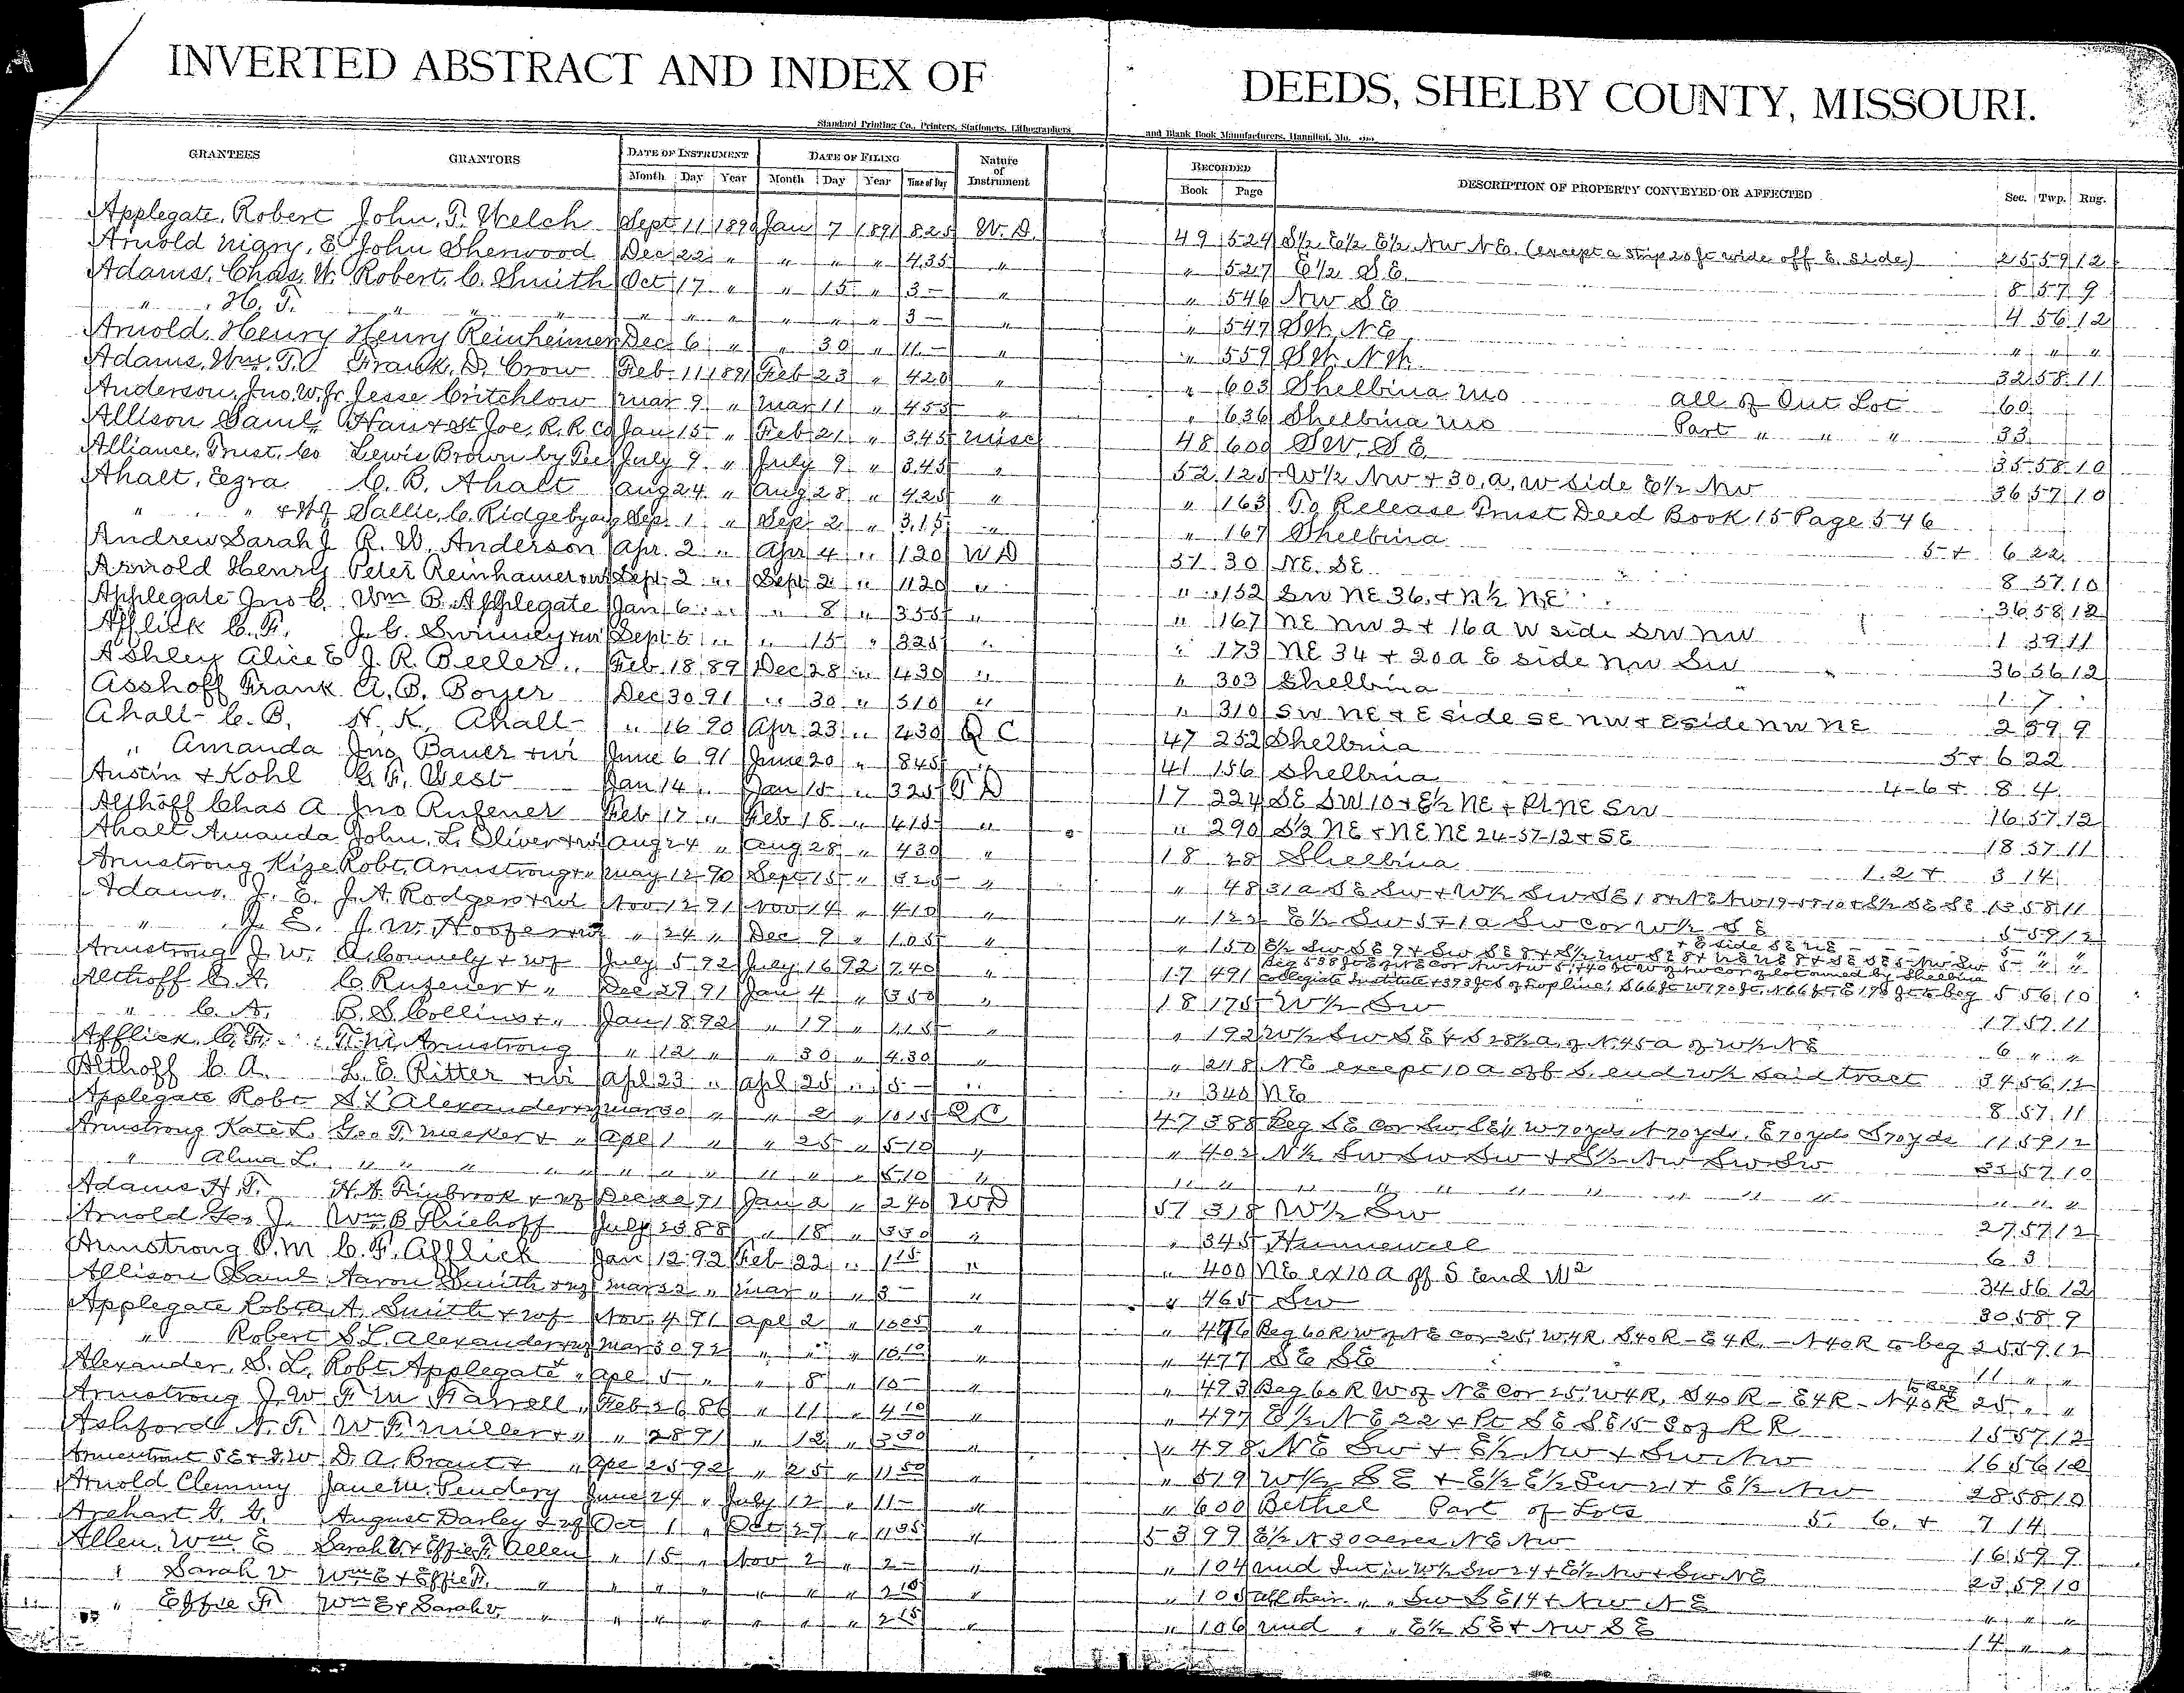 A
INVERTED ABSTRACT AND INDEX OF DEEDS, SHELBY COUNTY, MISSOURI.
Standard Printing Co., Printers, Stationers, Lithographers and Blank Book Manufacturers, Hannibal, Mo.
GRANTEES GRANTORS DATE OF INSTRUMENT DATE OF FILING Nature of Instrument RECORDED DESCRIPTION OF PROPERTY CONVEYED OR AFFECTED Sec. Twp. Rng.
Month Day Year Month Day Year Time of Day Book Page
Applegate, Robert John, T. Welch Sept 11 1890 Jan 7 1891 825 W.D. 49 524 S½ E½ E½ NW NE. (except a strip 20 ft wide off E. side) 25 59 12
Arnold E John Sherwood Dec 22 " " " " 435 " " 527 E½ SE 8 57 9
Adams, Chas, W. Robert, C. Smith Oct 17 " " 15 " 3- " " 546 NW SE 4 56 12
" H. T. " " " " " " " " " 3- " " 547 NE " " "
Arnold, Henry Henry Reinheimer Dec 6 " " 30 " 11- " " 559 32 58 11
Adams, Wm. T. Frank, D. Crow Feb 11 1891 Feb 23 " 420 " " 603 Shelbina Mo all of Out Lot 60
Anderson, Jno, W. Jr Jesse Critchlow Mar 9 " Mar 11 " 455 " " 636 Shelbina Mo Part " " " 33
Allison Saml Han & St Joe, R.R. Co Jan 15 " Feb 21 " 345 Misc 48 600 SW SE 35 58 10
Alliance, Trust, Co Lewis Brown by July 9 " July 9 " 345 " 52 125 W½ NW + 30, a, W side E½ NW 36 57 10
Ahalt, Ezra C. B. Ahalt Aug 24 " Aug 28 " 425 " " 163 To Release Trust Deed Book 15 Page 546
" " & Wf Sallie, C. Ridgeby Sep 1 " Sep 2 " 315 " " 167 Shelbina 5 + 6 22
Andrew Sarah J R. W. Anderson Apr. 2 " Apr 4 " 120 WD 51 30 NE. SE 8 57 10
Arnold Henry Peter Reinhamer Sept 2 " Sept 2 " 1120 " " 152 SW NE 36, + N½ NE 36 58 12
Applegate Jno C. Wm B. Applegate Jan 6 " " 8 " 355 " " 167 NE NW 2 + 16 a W side SW NW 1 59 11
Afflick C. F. J. C. Swinney + wi Sept 5 " " 15 " 325 " " 173 NE 34 + 20 a E side NW SW 36 56 12
Ashley Alice E J. R. Beeler Feb 18 89 Dec 28 " 430 " " 303 Shelbina 1 7
Asshoff Frank A. B. Boyer Dec 30 91 " 30 " 510 " " 310 SW NE + E side SE NW + E side NW NE 2 59 9
Ahalt C. B. H. K. Ahalt " 16 90 Apr 23 " 430 Q C 47 252 Shelbina 5 + 6 22
" Amanda Jno Bauer + wi June 6 91 June 20 " 845 " 41 156 Shelbina 4-6 + 8 4
Austin & Kohl G. F. West Jan 14 " Jan 15 " 325 T D 17 224 SE SW 10 + E½ NE + Pt NE SW 16 57 12
Althoff Chas A Jno Rufener Feb 17 " Feb 18 " 415 " " 290 S½ NE + NE NE 24-57-12 + SE 18 57 11
Ahalt Amanda John, L. Oliver + wi Aug 24 " Aug 28 " 430 " 18 28 Shelbina 1.2 + 3 14
Armstrong Kize Robt. Armstrong + " May 12 90 Sept 15 " 525 " " 48 31 a SE SW + W½ SW SE 18 + NE NW 19-58-10 + S½ SE SE 13 58 11
Adams, J. E. J. A. Rodgers + wi Nov 12 91 Nov 14 " 410 " " 122 E½ SW 5 + 1 a SW cor W½ SE 5 59 12
" J. E. J. W. Hoofer " 24 " Dec 9 " 105 " " 150 E½ SW SE 9 + SW SE 8 + S½ NW SE 8 + NE NE 8 + SE SE 5 NW SW + E side SE NE 5 " "
Armstrong J. W. A. Connely + wf July 5 92 July 16 92 740 " 17 491 Collegiate Institute 5 56 10
Althoff C. A. C. Rufener + " Dec 29 91 Jan 4 " 350 " 18 175 W½ SW 17 57 11
" C. A. B. S. Collins + " Jan 18 92 " 19 " 115 " " 192 W½ SW SE + S 28½ a, of N. 45 a of W½ NE 6 " "
Afflick C. F. T. M. Armstrong " 12 " " 30 " 430 " " 218 NE except 10 a off S. end W½ said tract 34 56 12
Althoff C. A. L. E. Ritter + wi Apl 23 " Apl 25 " 5- " " 340 NE 8 57 11
Applegate Robt S L Alexander Mar 30 " " 2 " 1015 QC 47 388 Beg SE cor SW SE¼ W 70 yds N 70 yds. E 70 yds S 70 yds 11 59 12
Armstrong Kate L. Geo T. Meeker + " Apl 1 " " 25 " 510 " " 402 N½ SW SW SW + S½ NW SW SW 35 57 10
" Alma L. " " " " " " " " " " 510 " " " " " " " " " " " " "
Adams H. T. H. A. Timbrook + wf Dec 22 91 Jan 2 " 240 WD 51 318 W½ SW 27 57 12
Arnold Geo J. Wm B Thiehoff July 23 88 " 18 " 330 " " 345 Hunnewell 6 3
Armstrong T. M C. F. Afflick Jan 12 92 Feb 22 " 115 " " 400 NE ex 10 a off S end W2 34 56 12
Allison Saml Aaron Smith + wf Mar 22 " Mar " " 3- " " 465 SW 30 58 9
Applegate Robt A. Smith + wf Nov 4 91 Apl 2 " 1005 " " 476 Beg 60 R W of NE cor 25, W 4R, S 40 R - E 4 R, - N 40 R to beg 25 59 12
" Robert S. L. Alexander + wf Mar 30 92 " " " 1010 " " 477 SE SE 11 " "
Alexander, S. L. Robt Applegate + " Apl 5 " " 8 " 10- " " 493 Beg 60 R W of NE Cor 25, W 4 R, S 40 R - E 4 R - N 40 R to beg 25 " "
Armstrong J. W F M Harrell " Feb 26 86 " 11 " 410 " " 497 E½ NE 22 + Pt SE SE 15 S of R R 15 57 12
Ashford A. T. W F. Miller + " " 28 91 " 12 " 330 " " 498 NE SW + E½ NW + SW NW 16 56 12
Armentrout S E + J. W D. A. Brant + " Apl 25 92 " 25 " 1150 " " 519 W½ SE + E½ E½ SW 21 + E½ NW 28 58 10
Arnold Clemmy Jane M. Pendery June 24 " July 12 " 11- " " 600 Bethel Part of Lots 5. 6. + 7 14
Arehart G. G. August Darley + wf Oct 1 " Oct 29 " 1105 " 53 99 E½ N 30 acres NE NW 16 59 9
Allen, Wm. E Sarah V. + Effie F. Allen " 15 " Nov 2 " 2- " " 104 und Int in W½ SW 24 + E½ NW + SW NE 23 59 10
" Sarah V Wm E + Effie F. " " " " " " " 210 " " 105 all their " " SW SE 14 + NW NE " " "
" Effie F. Wm E + Sarah V. " " " " " " " 215 " " 106 und " " E½ SE + NW SE 14 " "